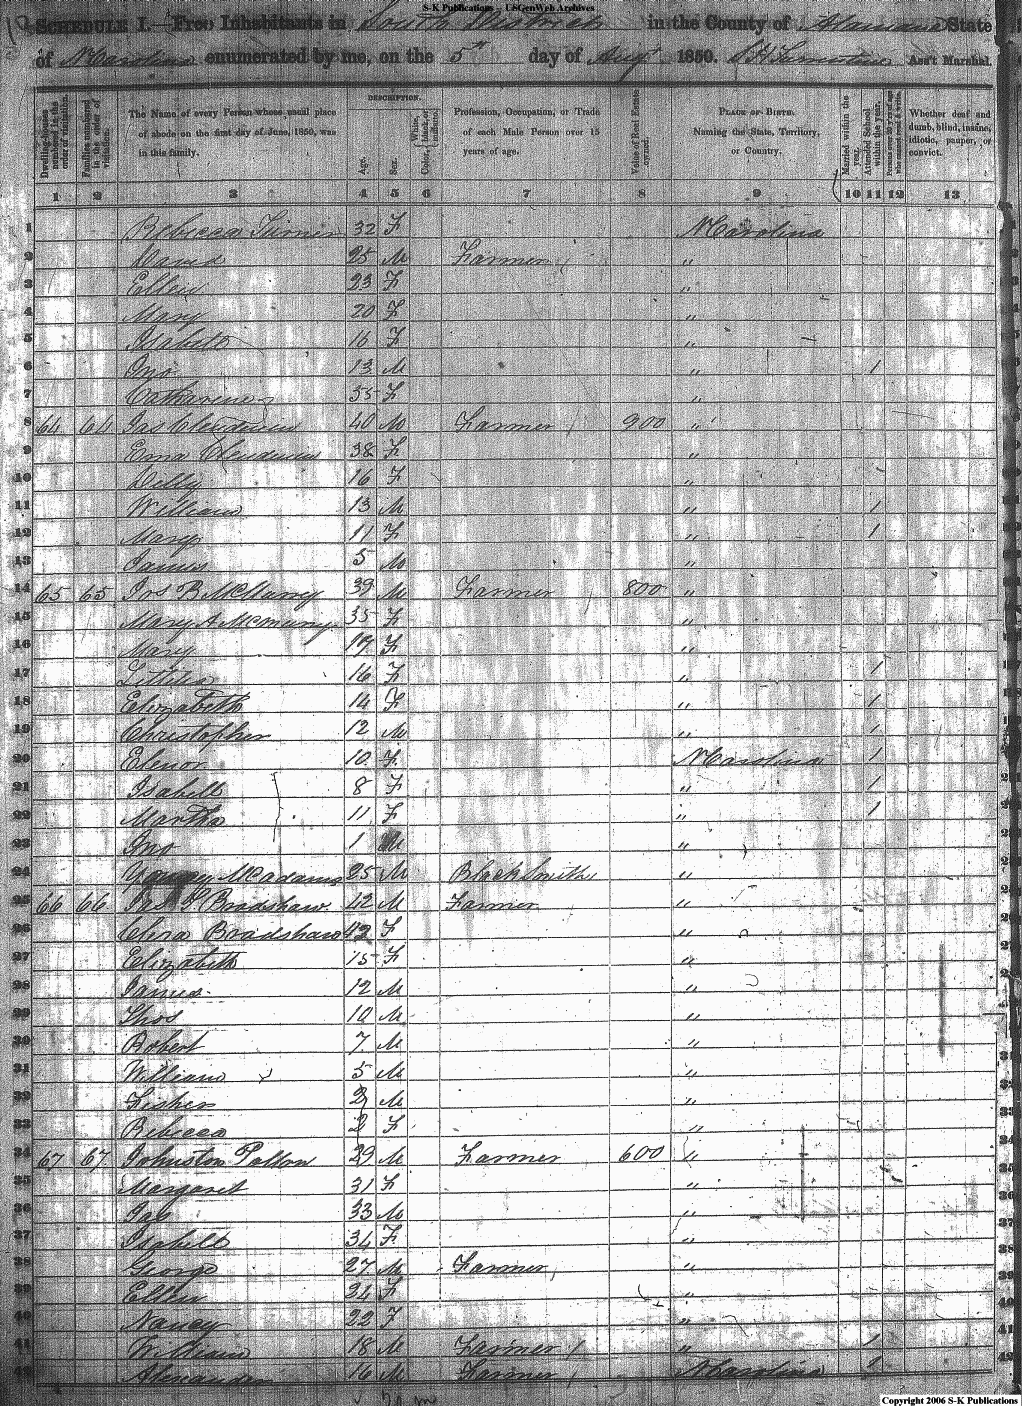 S-K Publications - USGenWeb Archives
SCHEDULE I. Free Inhabitants in South District in the County of Alamance State
of N Carolina enumerated by me, on the 5th day of Augt 1850. Ass't Marshal.
Dwelling-houses numbered in the order of visitation. Families numbered in the order of visitation. The Name of every Person whose usual place of abode on the first day of June, 1850, was in this family. DESCRIPTION. Age. Sex. Color, White, black, or mulatto. Profession, Occupation, or Trade of each Male Person over 15 years of age. Value of Real Estate owned. PLACE OF BIRTH. Naming the State, Territory, or Country. Married within the year. Attended School within the year. Persons over 20 years of age who cannot read & write. Whether deaf and dumb, blind, insane, idiotic, pauper, or convict.
1 2 3 4 5 6 7 8 9 10 11 12 13
1 Rebecca Turner 32 F N Carolina
2 25 M Farmer "
3 Ellen 23 F "
4 Mary 20 F "
5 16 F "
6 Jno 13 M " 1
7 Catharine 35 F "
8 64 64 Jas 40 M Farmer 900 "
9 38 F "
10 16 F "
11 William 13 M " 1
12 Mary 11 F " 1
13 James 5 M "
14 65 65 Jas B McMurry 39 M Farmer 800 "
15 Mary A McMurry 35 F "
16 Mary F "
17 16 F " 1
18 Elizabeth 14 F " 1
19 Christopher 12 M " 1
20 Elenor 10 F N Carolina 1
21 Isabell 8 F " 1
22 Martha 11 F " 1
23 Jno 1 M "
24 McAdams 25 M BlackSmith "
25 66 66 Bradshaw 42 M Farmer "
26 Bradshaw 42 F "
27 Elizabeth 15 F "
28 James 12 M "
29 Thos 10 M "
30 Robert 7 M "
31 William 5 M "
32 M "
33 Rebecca 2 F "
34 67 67 Johnston Patton 29 M Farmer 600 "
35 Margaret 31 F "
36 33 M "
37 Isabell 34 F "
38 George 27 M Farmer "
39 Ellen 24 F "
40 Nancy 22 F "
41 William 18 M Farmer " 1
42 Alexander 16 M Farmer N Carolina 1
Copyright 2006 S-K Publications